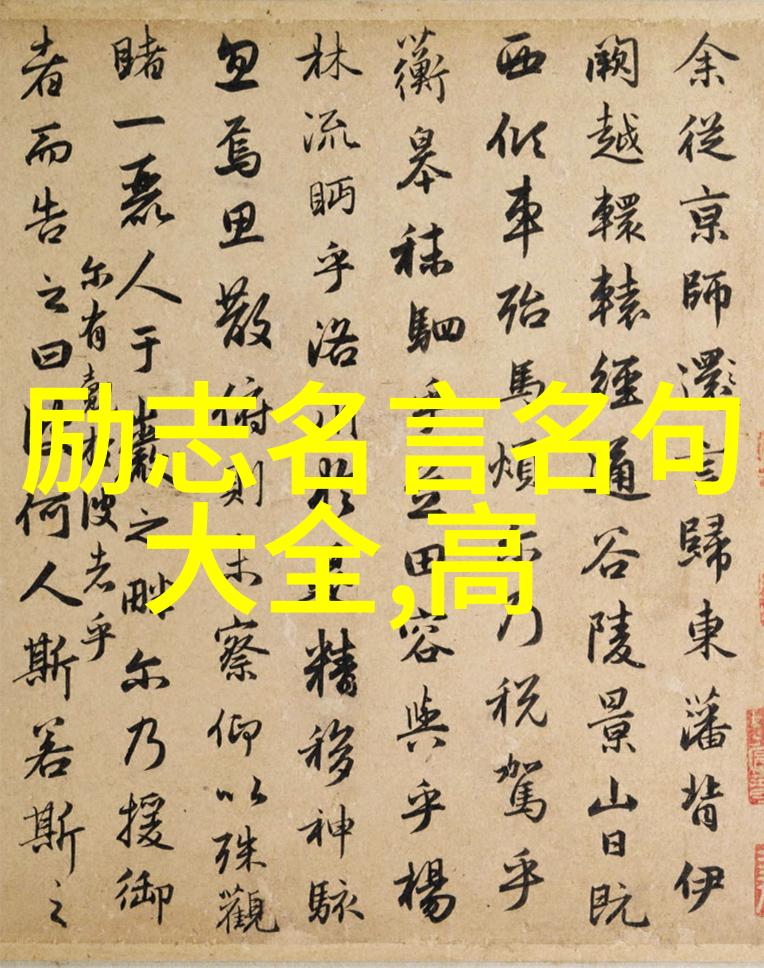 余從京師還言歸東藩背伊
闕越轘轅經通谷陵景山日既
西傾車殆馬煩尔乃税駕乎
蘅皋秣駟乎芝田容與乎楊
林流眄乎洛川於是精移神駭
忽焉思散俯則未察仰以殊觀
睹一麗人于巖之畔尔乃援御
尔有覿於彼者乎
者而告之曰彼何人斯若斯之
励志名言名句
大全,高